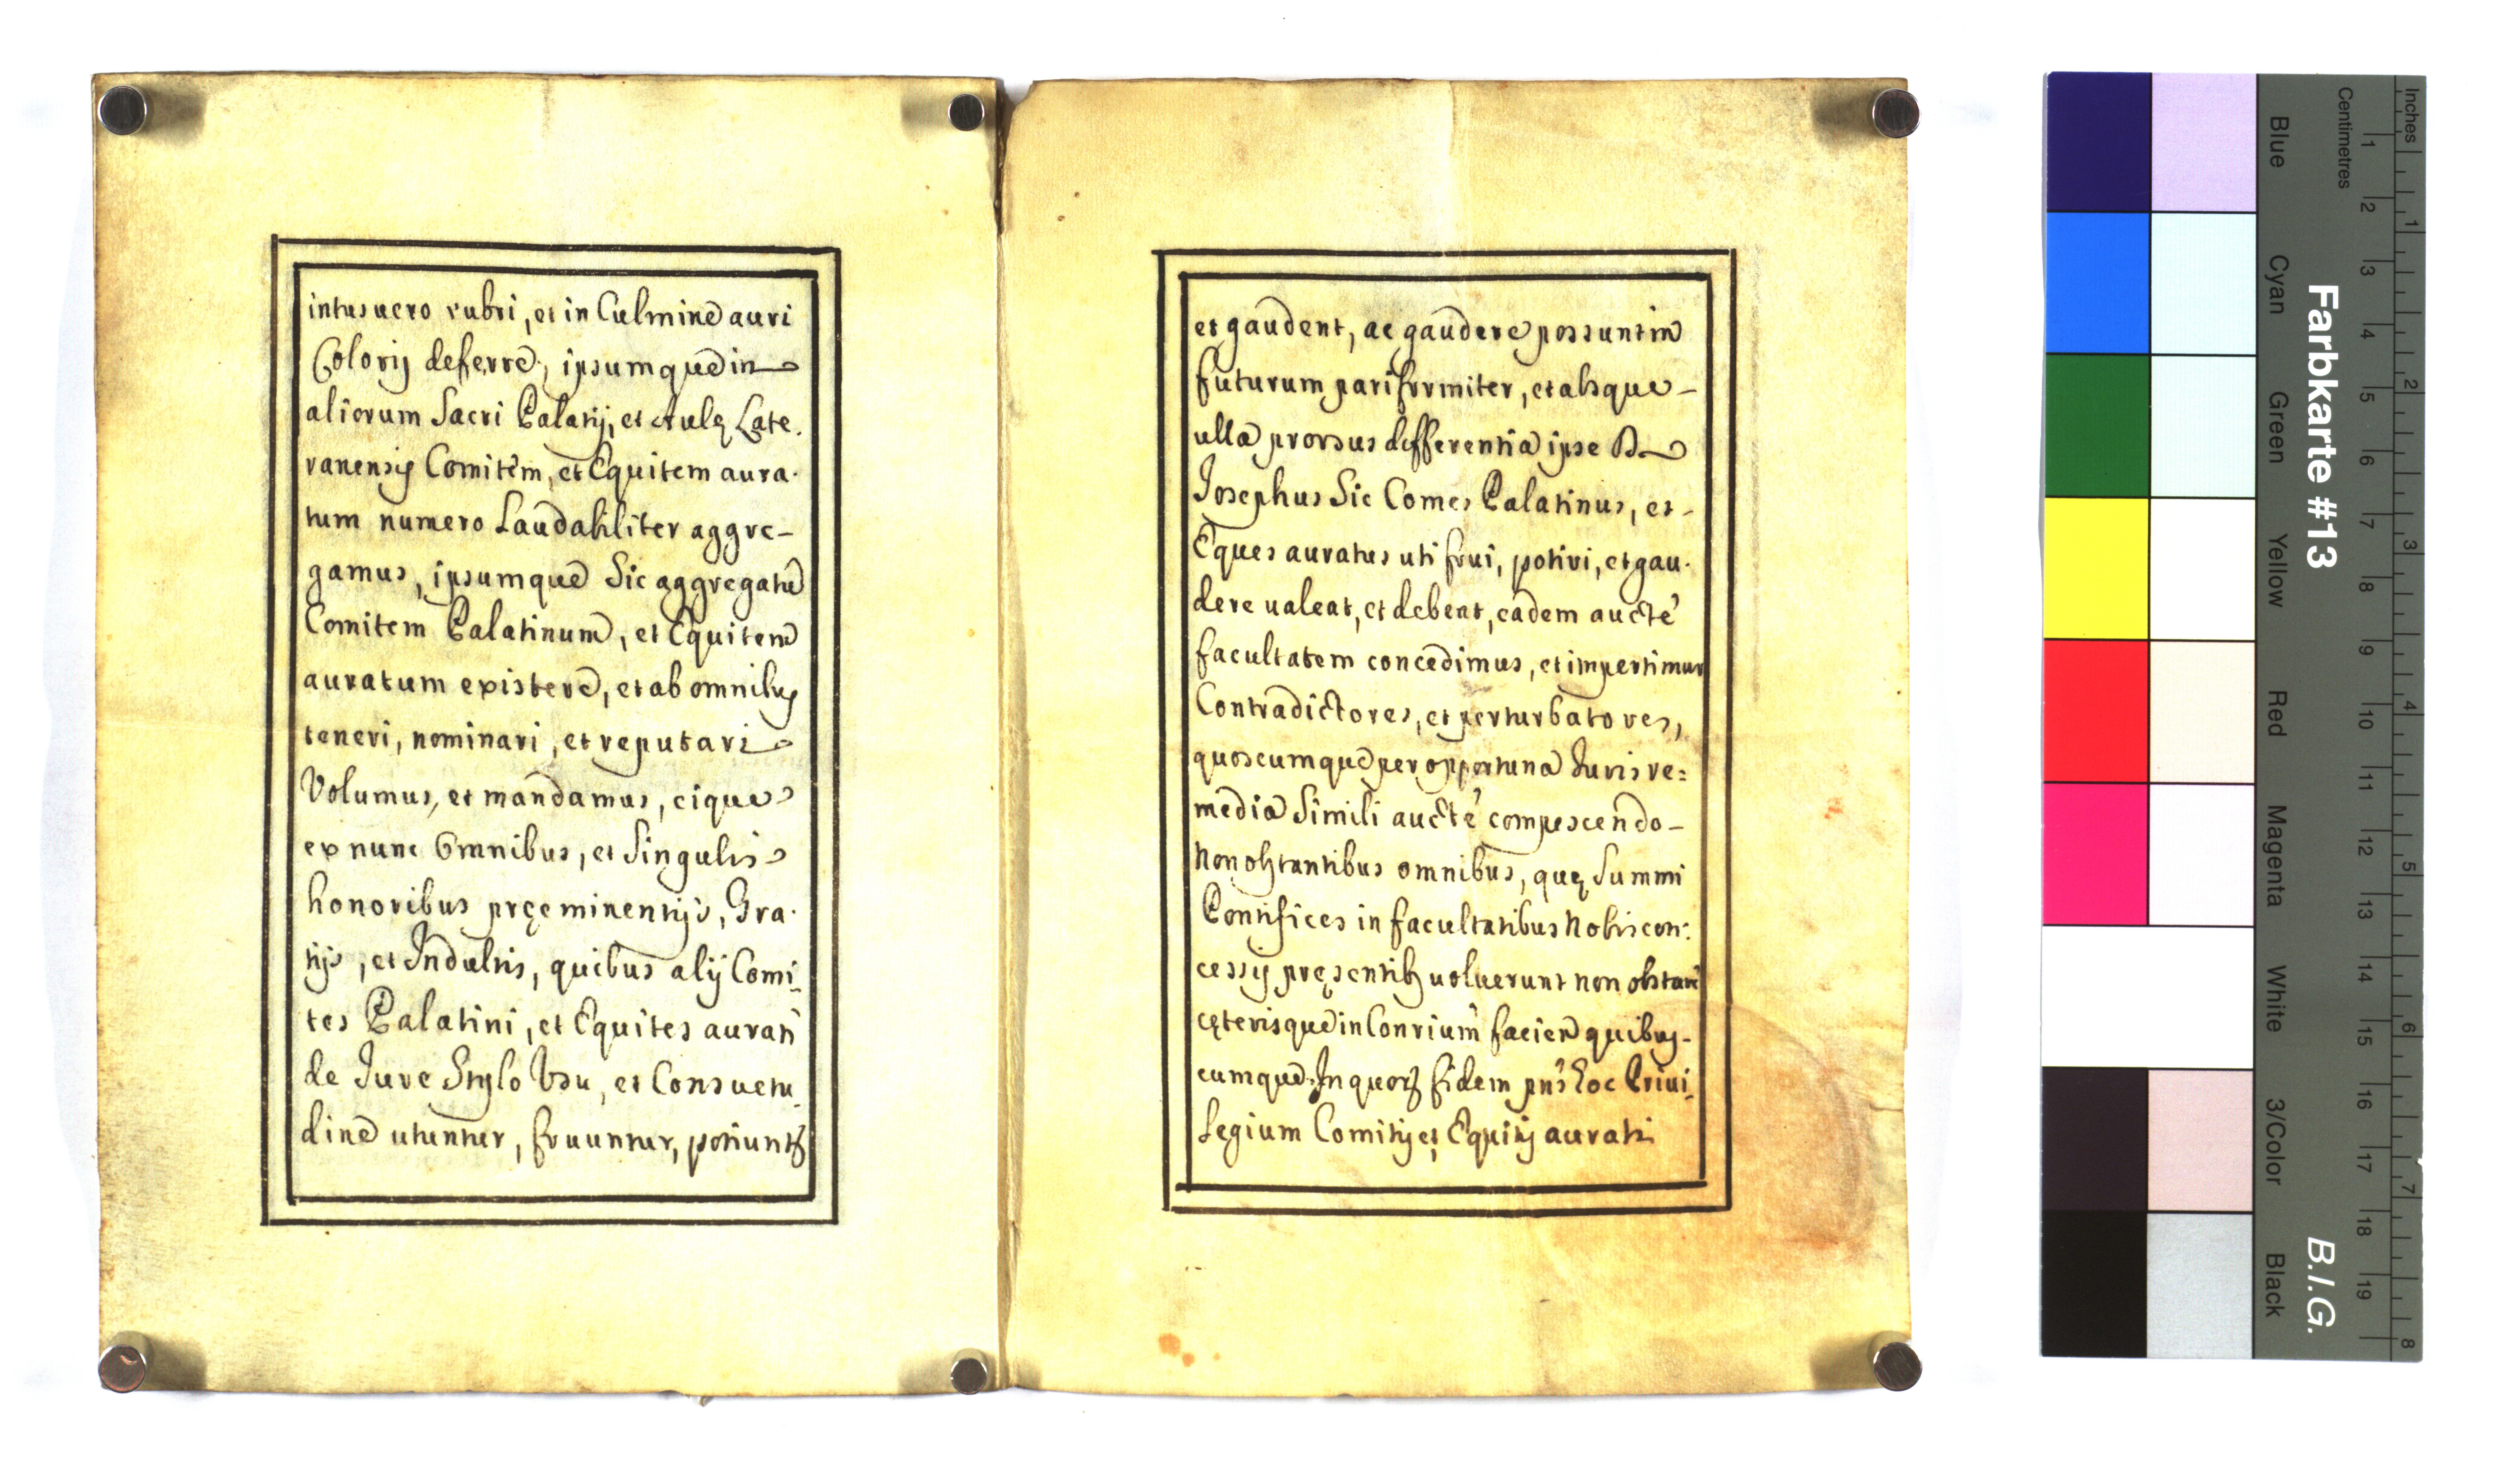 intus uero rubri, et in Culmine auri
Colorij deferre, ipsumque in
aliorum Sacri Palatij, et Aulę Late.
ranensis Comitem, et Equitem aura.
tum numero Laudabiliter aggre-
gamus, ipsumque Sic aggregatū
Comitem Palatinum, et Equitem
auratum existere, et ab omnibus
teneri, nominari, et reputari
Volumus, et mandamus, eique
ex nunc Omnibus, et Singulis
honoribus pręeminentijs, Gra.
tijs, et Indultis, quibus alij Comi.
tes Palatini, et Equites aurati
de Jure Stylo Vsu, et Consuetu.
dine utuntur, fruuntur, potiuntʒ
et gaudent, ac gaudere possunt in
futurum pariformiter, et absque-
ulla prorsus differentia ipse D.
Josephus Sic Comes Palatinus, et-
Eques auratus uti frui, potiri, et gau.
dere ualeat, et debeat, eadem aucte'
facultatem concedimus, et impertimur
Contradictores, et perturbatores,
quoscumque per opportuna Juris re=
media Simili aucte' compescendo-
Non obstantibus omnibus, quę Summi
Pontifices in facultatibus Nobis con:
cessis pręsentibʒ uoluerunt non obstan'
cęterisque in Conrium' facien quibus-
cumque. In quorʒ fidem pns' hoc Priui.
legium Comitis, et Equitis aurati
Farbkarte #13
B.I.G.
Inches
Centimetres
1 2 3 4 5 6 7 8
1 2 3 4 5 6 7 8 9 10 11 12 13 14 15 16 17 18 19
Blue
Cyan
Green
Yellow
Red
Magenta
White
3/Color
Black